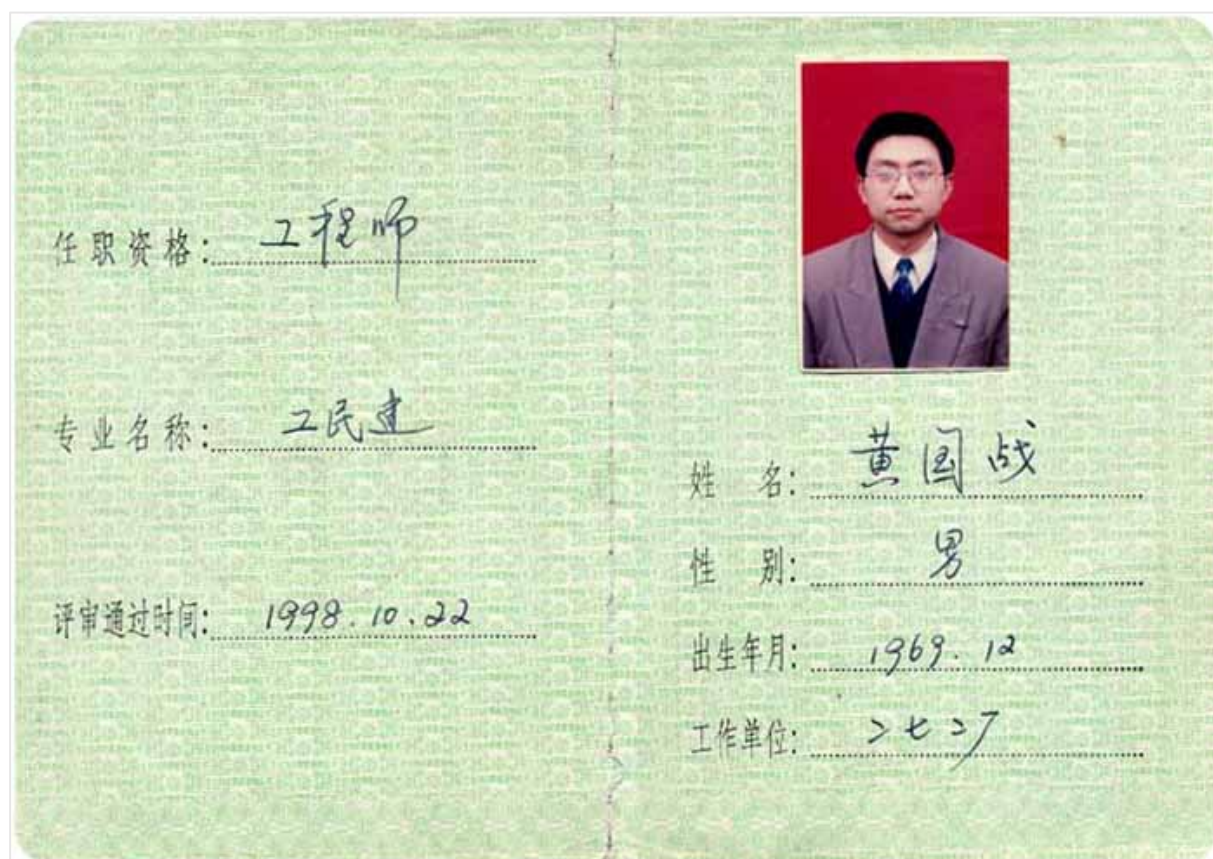 任职资格：工程师
专业名称：工民建
评审通过时间：1998.10.22
姓 名：黄国战
性 别：男
出生年月：1969.12
工作单位：二七二厂